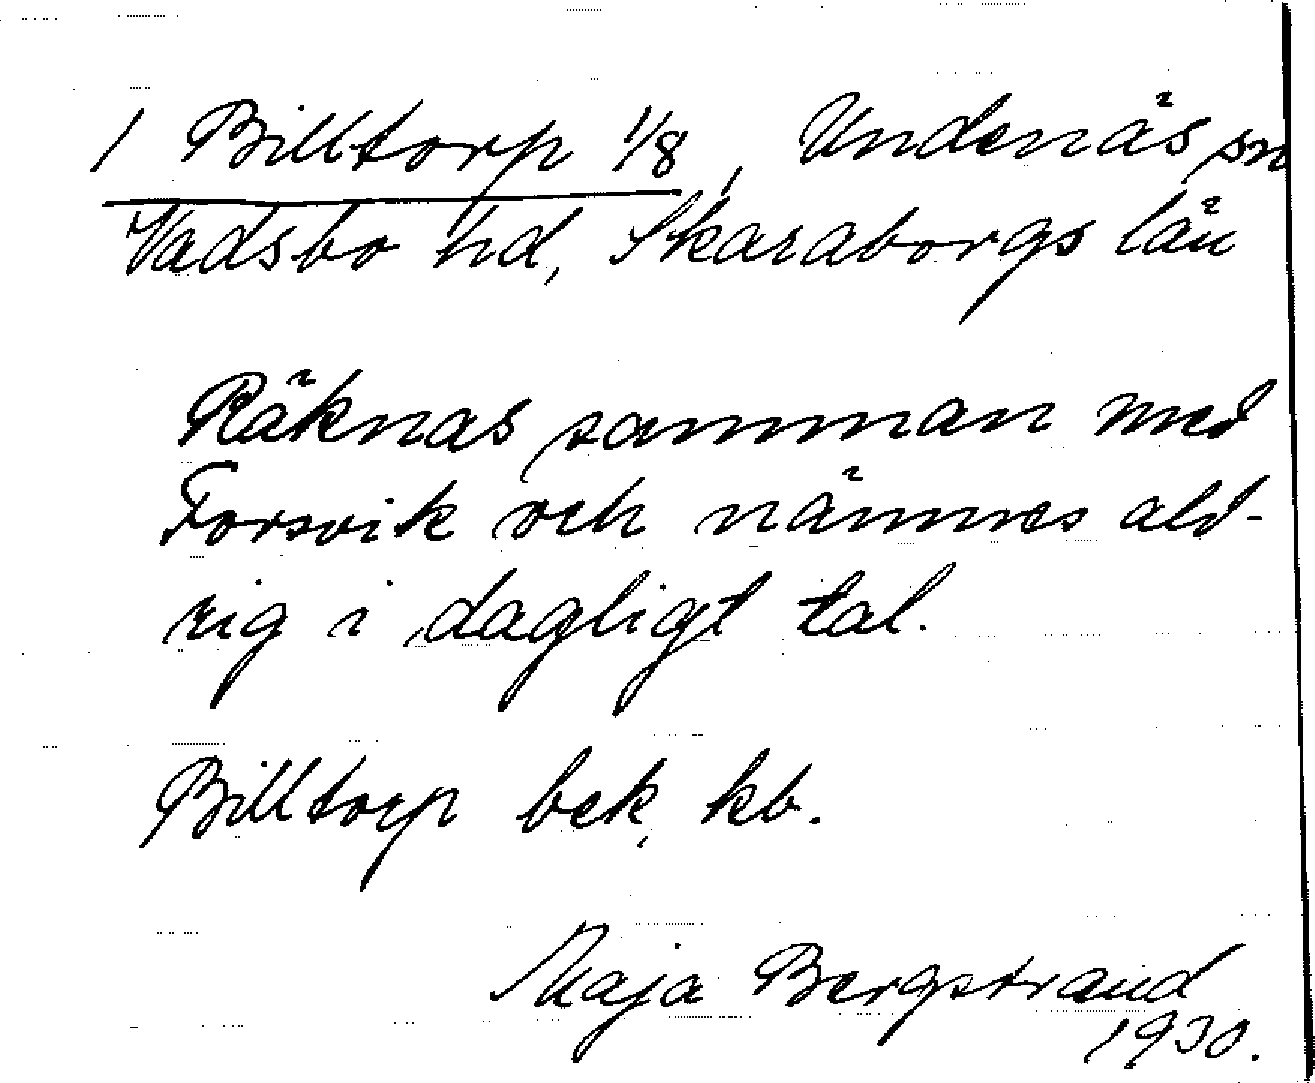 1 Billtorp 1/8, Undenäs sn
Vadsbo hd, Skaraborgs län
Räknas samman med
Forsvik och nämnes ald-
rig i dagligt tal.
Billtorp bek, kb.
Maja Bergstrand
1930.